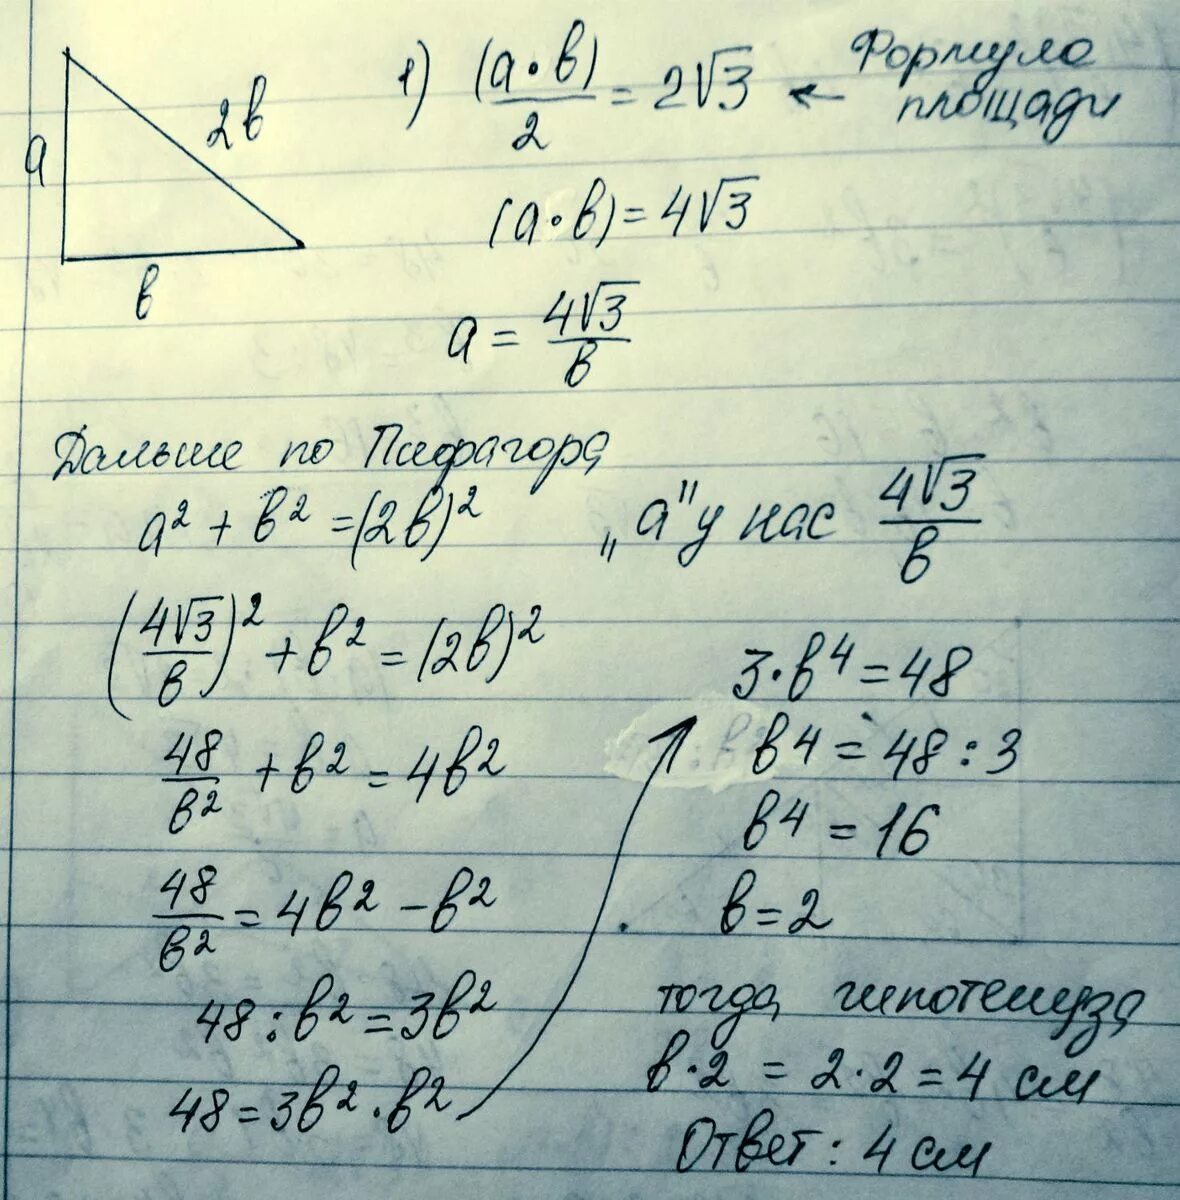 a
2в
в
1) (a·в)/2 = 2√3 ← Формула площади
(a·в) = 4√3
a = 4√3/в
Дальше по Пифагора
a² + в² = (2в)²
„a" у нас 4√3/в
(4√3/в)² + в² = (2в)²
48/в² + в² = 4в²
48/в² = 4в² – в²
48 : в² = 3в²
48 = 3в² · в²
3·в⁴ = 48
в⁴ = 48 : 3
в⁴ = 16
в = 2
тогда гипотенуза
в·2 = 2·2 = 4 см
Ответ: 4 см